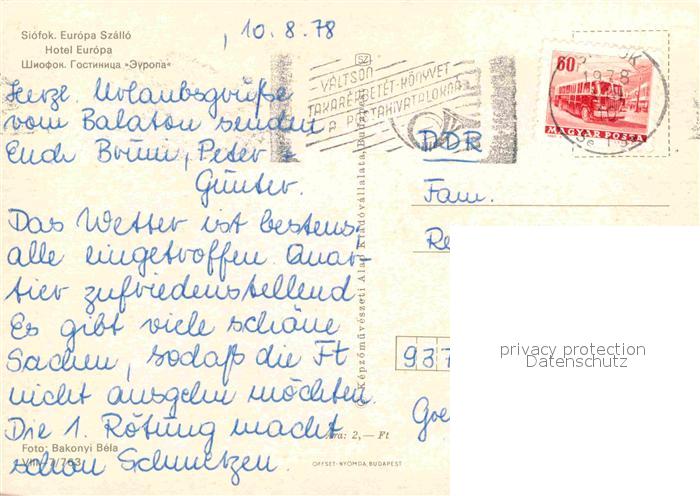 , 10.8.78
Siófok. Európa Szálló
Hotel Európa
Шиофок. Гостиница "Эуропа"
Herzl. Urlaubsgrüße
vom Balaton senden
Euch Peter +
Günter.
Das Wetter ist bestens.
alle eingetroffen. Quar-
tier zufriedenstellend
Es gibt viele schöne
Sachen, sodaß die Ft
nicht ausgehn möchten.
Die 1. Rötung macht
schon Schmerzen.
Foto: Bakonyi Béla
VIII-7/763
Képzőművészeti Alap Kiadóvállalata, Budapest
Ára: 2,— Ft
OFFSET-NYOMDA, BUDAPEST
SZ
VÁLTSON
TAKARÉKBETÉT-KÖNYVET
A POSTAHIVATALOKNÁL
60f
MAGYAR POSTA
1978
DDR
Fam.
Re
937
Goe
privacy protection
Datenschutz